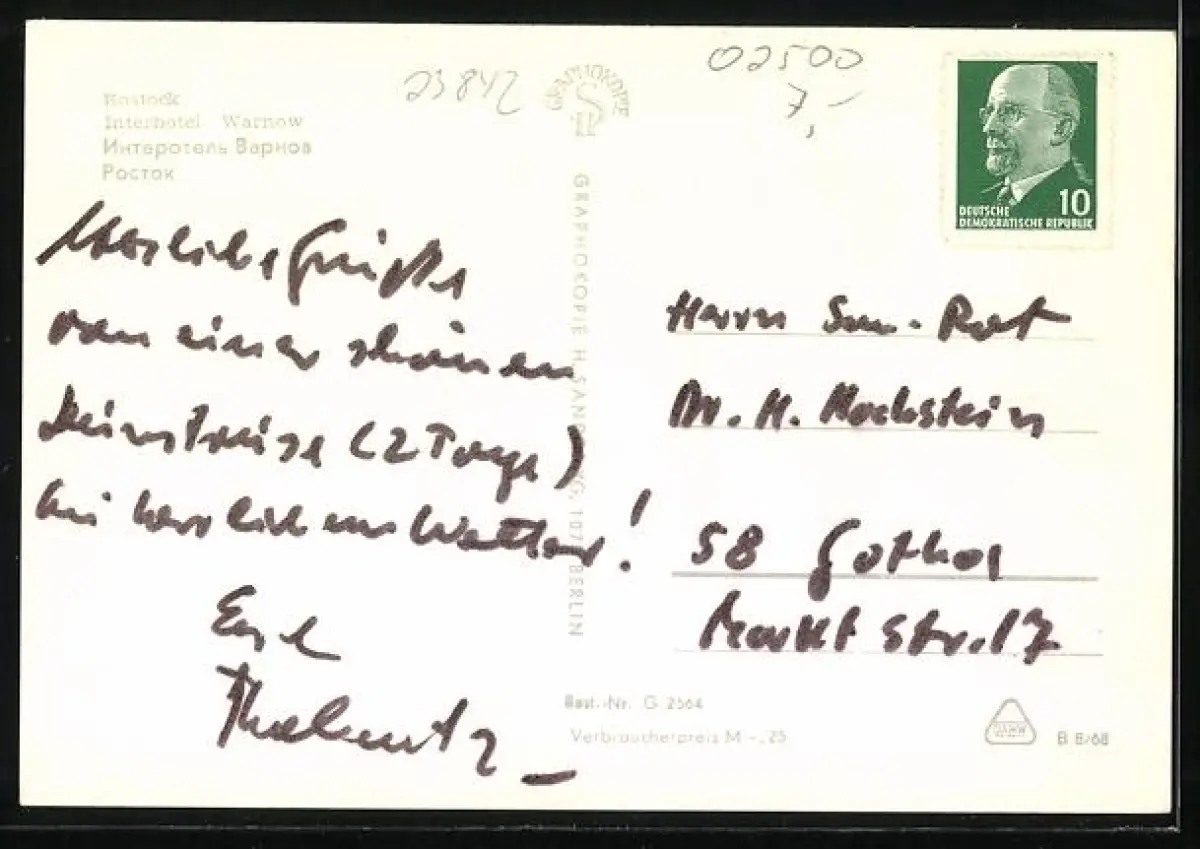 23842
02500
7,-
Rostock
Interhotel Warnow
Интеротель Варнов
Росток
GRAPHOKOPIE
GRAPHOKOPIE H. SANDER KG, 107 BERLIN
10
DEUTSCHE
DEMOKRATISCHE REPUBLIK
Herzliche Grüße
von einer schönen
Dienstreise (2 Tage)
bei herrlichem Wetter!
Herrn San.-Rat
Dr. H. Hochstein
58 Gotha
Marktstr. 17
Best.-Nr. G 2564
Verbraucherpreis M -,25
B 8/68